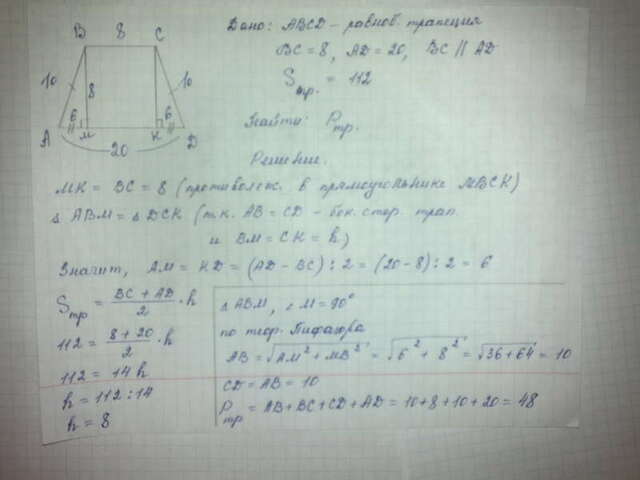 B 8 C
10 8 10
6 6
A M K D
20
Дано: ABCD - равноб. трапеция
BC = 8, AD = 20, BC || AD
Sтр. = 112
Найти: Pтр.
Решение.
MK = BC = 8 (противолеж. в прямоугольнике MBCK)
Δ ABM = Δ DCK (т.к. AB = CD - бок. стор. трап.
и BM = CK = h)
Значит, AM = KD = (AD - BC) : 2 = (20 - 8) : 2 = 6
Sтр = (BC + AD)/2 · h
112 = (8 + 20)/2 · h
112 = 14 h
h = 112 : 14
h = 8
Δ ABM, ∠ M = 90°
по теор. Пифагора
AB = √(AM² + MB²) = √(6² + 8²) = √(36 + 64) = 10
CD = AB = 10
Pтр = AB + BC + CD + AD = 10 + 8 + 10 + 20 = 48